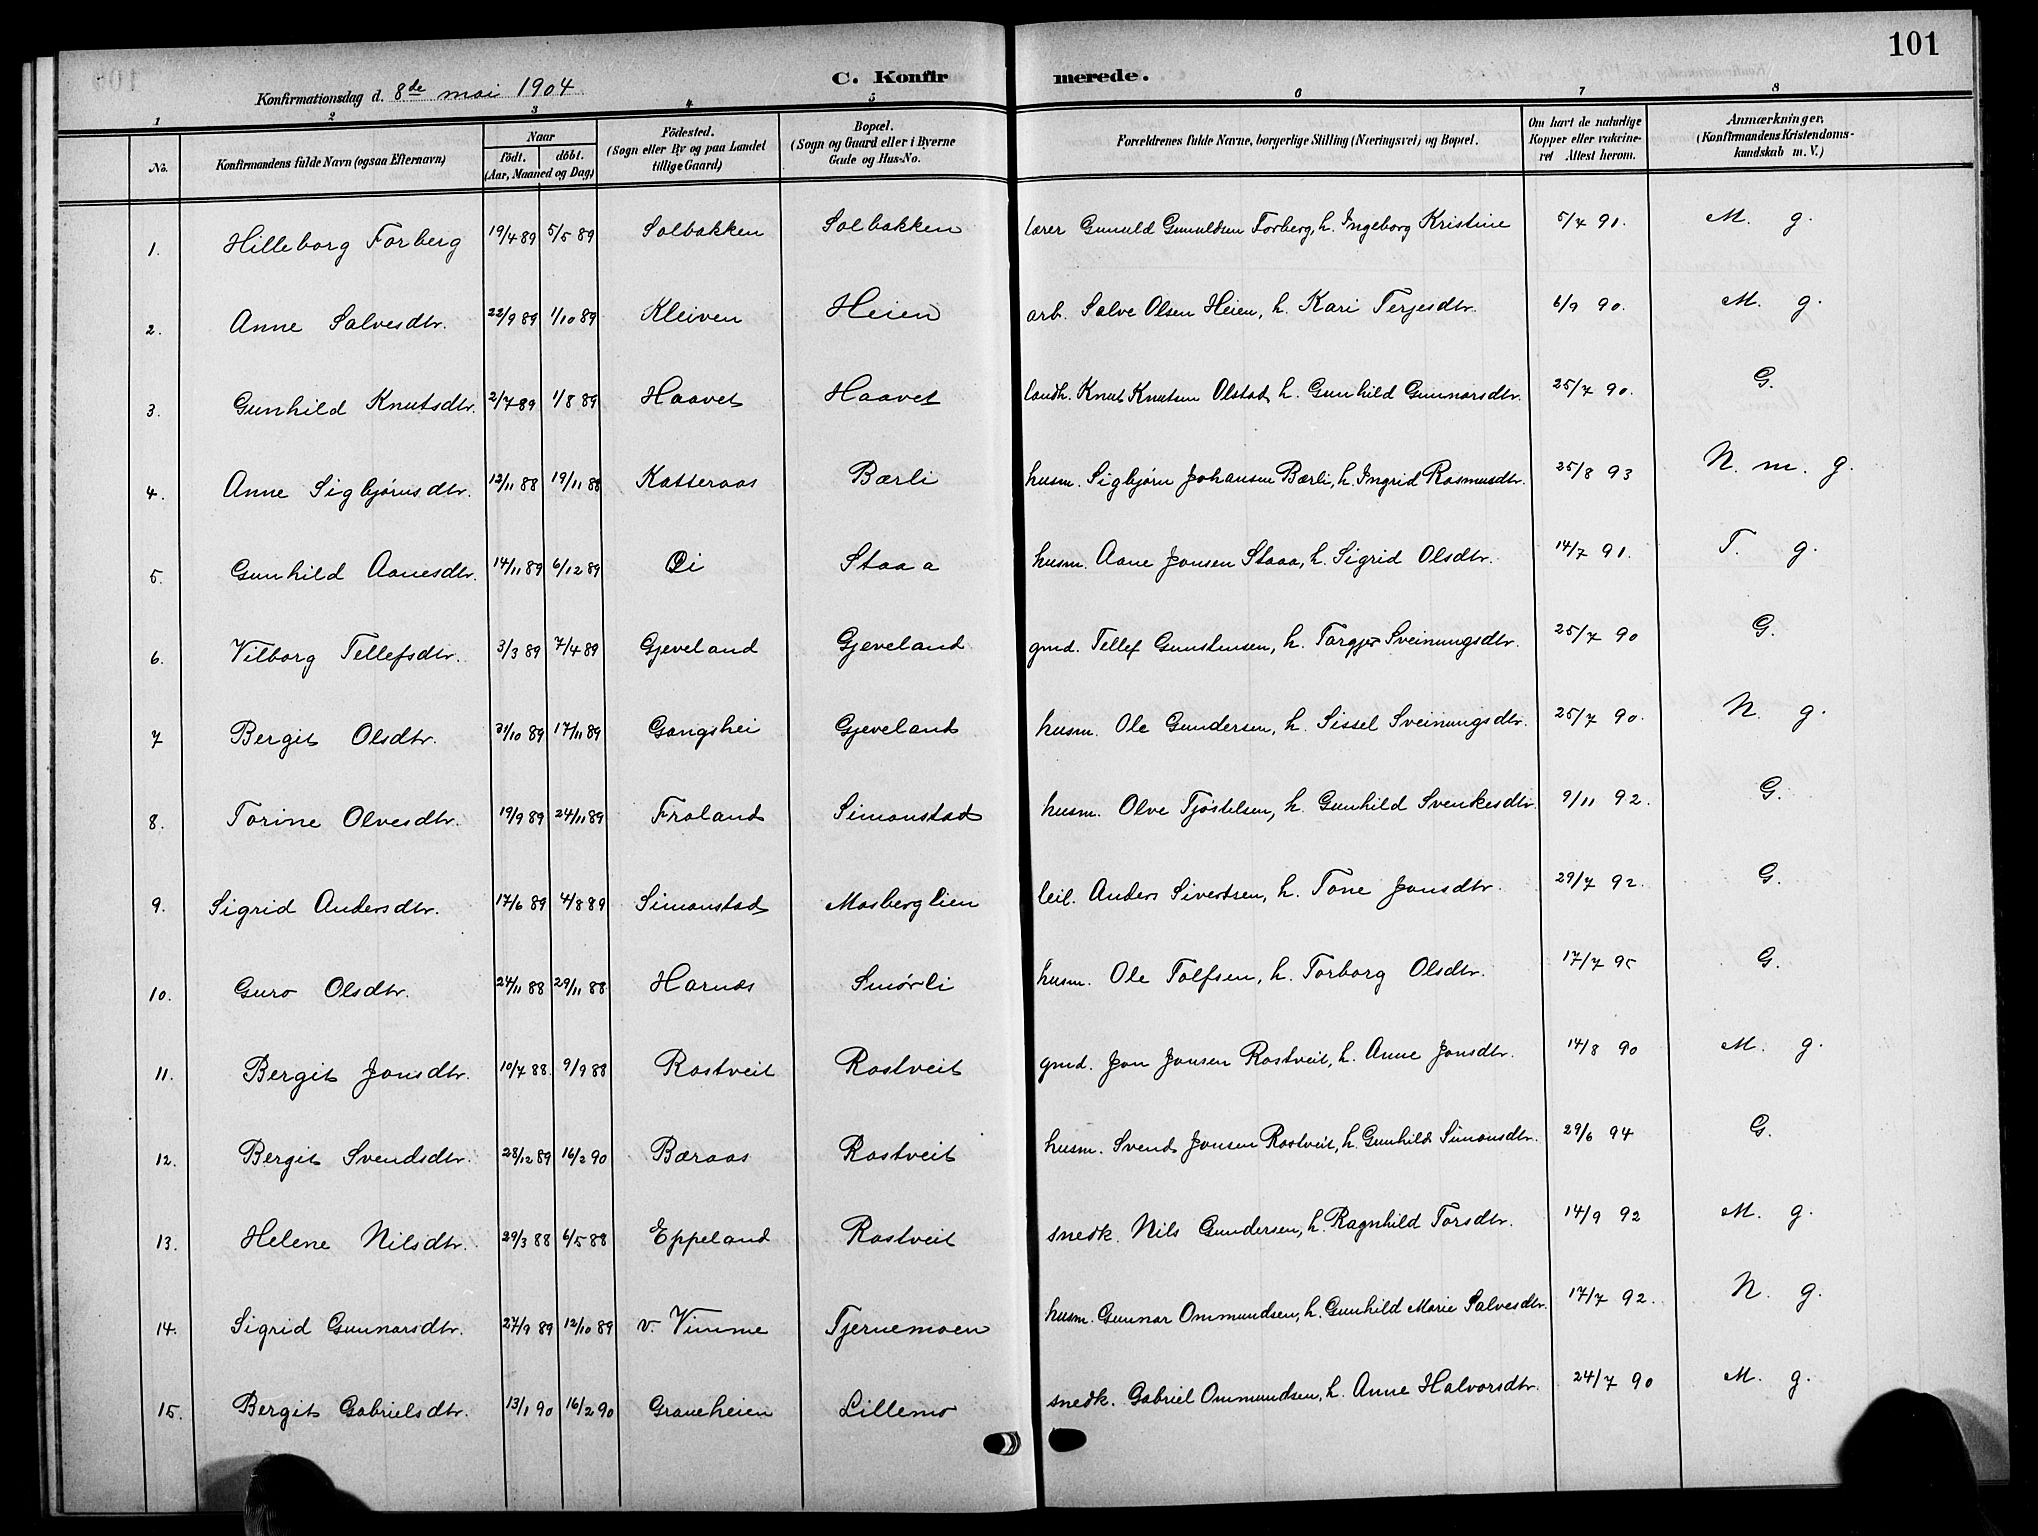 101
C. Konfirmerede.
Konfirmationsdag d. 8de mai 1904
1 2 3 4 5 6 7 8
No. | Konfirmandens fulde Navn (ogsaa Efternavn) | Naar födt. döbt. (Aar, Maaned og Dag) | Födested. (Sogn eller By og paa Landet tillige Gaard) | Bopæl. (Sogn og Gaard eller i Byerne Gade og Hus-No. | Forældrenes fulde Navne, borgerlige Stilling (Næringsvei) og Bopæl. | Om havt de naturlige Kopper eller vakcineret Attest herom. | Anmærkninger. (Konfirmandens Kristendomskundskab m. V.)
1. Hilleborg Forberg 19/4 89 5/5 89 Solbakken Solbakken lærer Gunuld Gunuldsen Forberg, h. Ingeborg Kristine 5/7 91. M. g.
2. Anne Salvesdtr. 22/9 89 1/10 89 Kleiven Heien arb. Salve Olsen Heien, h. Kari Terjesdtr. 6/9 90. M. g.
3. Gunhild Knutsdtr. 2/7 89 1/8 89 Haavet Haavet landh. Knut Knutsen Olstad, h. Gunhild Gunnarsdtr. 25/7 90. G.
4. Anne Sigbjørnsdtr. 12/11 88 19/11 88 Katteraas Bærli husm. Sigbjørn Johansen Bærli, h. Ingrid Rasmusdtr. 25/8 93 N. m. g.
5. Gunhild Aanesdtr. 14/11 89 6/12 89 Øi Staaa husm. Aane Jonsen Staaa, h. Sigrid Olsdtr. 14/7 91. T. g.
6. Vilborg Tellefsdtr. 3/3 89 7/4 89 Gjeveland Gjeveland gmd. Tellef Gunstensen, h. Torgjer Sveinungsdtr. 25/7 90 G.
7 Bergit Olsdtr. 31/10 89 17/11 89 Gangshei Gjeveland husm. Ole Gundersen, h. Sissel Sveinungsdtr. 25/7 90. N. g.
8. Torine Olvesdtr. 19/9 89 24/11 89 Froland Simonstad husm. Olve Tjøstelsen, h. Gunhild Svenkesdtr. 9/11 92. G.
9. Sigrid Andersdtr. 17/6 89 4/8 89 Simonstad Mosberglien leil. Anders Sivertsen, h. Tone Jonsdtr. 29/7 92. G.
10. Guro Olsdtr. 24/11 88 29/11 88 Harnæs Smørli husm. Ole Tolfsen, h. Torborg Olsdtr. 17/7 95 G.
11. Bergit Jonsdtr. 10/7 88. 9/9 88 Rostveit Rostveit gmd. Jon Jonsen Rostveit, h. Anne Jonsdtr. 14/8 90 M. g.
12. Bergit Svendsdtr. 28/12 89 16/2 90 Bæraas Rostveit husm. Svend Jonsen Rostveit, h. Gunhild Simonsdtr. 29/6 94 G.
13. Helene Nilsdtr. 29/3 88 6/5 88 Eppeland Rostveit snedk. Nils Gundersen, h. Ragnhild Torsdtr. 14/9 92 M. g.
14. Sigrid Gunnarsdtr. 27/9 89 12/10 89 v. Vimme Tjernemoen husm. Gunnar Ommundsen, h. Gunhild Marie Salvesdtr. 17/7 92. N. g.
15. Bergit Gabrielsdtr. 13/1 90 16/2 90 Graneheien Lillemo snedk. Gabriel Ommundsen, h. Anne Halvorsdtr. 24/7 90 M. g.